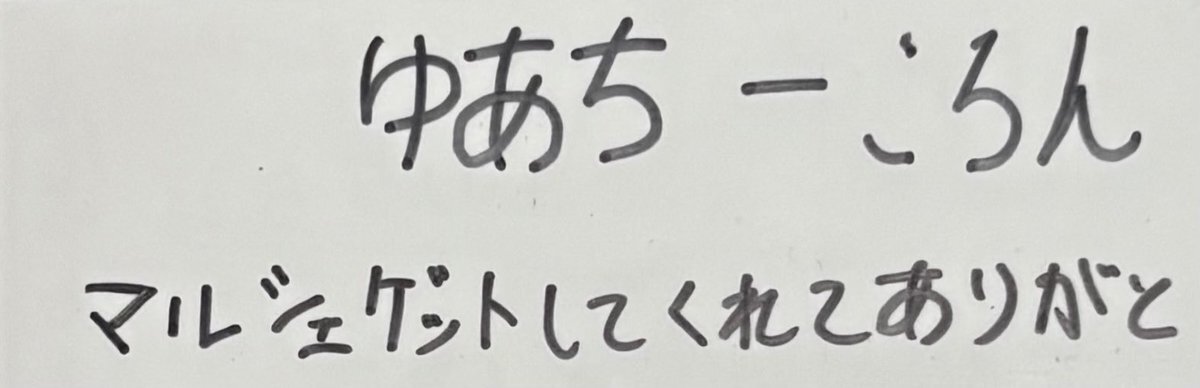 ゆあちーころん
マルジェゲットしてくれてありがと